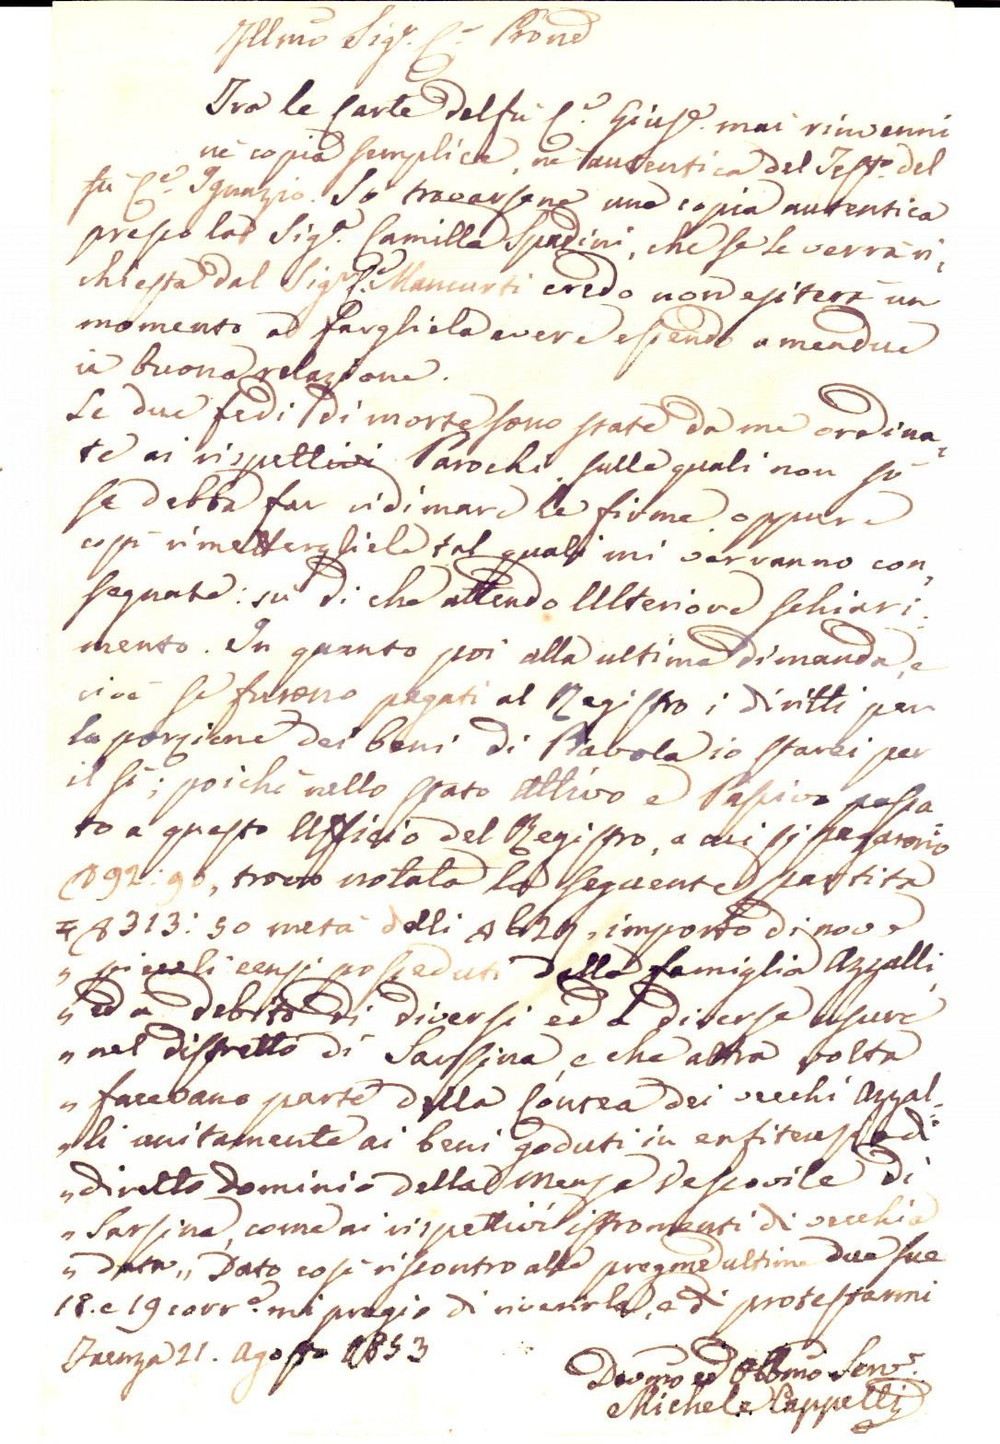 Illmo Sigr. Cᵉ Prone
Tra le Carte del fù Cᵉ Giusᵉ. mai rinvenni
nè copia semplice, nè autentica del Testo. del
fù Cᵉ Ignazio. So trovarsene una copia autentica
presso la Sigᵃ. Camilla Spadini, che se le verrà ri,
chiesta dal Sigr Mancurti credo non esiterà un
momento a fargliela avere essendo amendue
in buona relazione.
Le due fedi di morte sono state da me ordina,
te ai rispettivi Parochi, sulle quali non sò
se debba far vidimare le firme, oppure
così rimettergliele tal quali mi verranno con,
segnate: sù di che attendo Ulteriore Schiari,
mento. In quanto poi alla ultima dimanda, e
cioè se furono pagati al Registro i diritti per
la porzione dei beni di Piavola io starei per
il sì; poichè nello stato Attivo e Passivo passa,
to a questo Ufficio del Registro, a cui si pagarono
92:90, trovo notata la seguente partita
313: 50 metà delli 627, importo di nove
„ piccoli censi posseduti dalla famiglia Azzalli
„ ed a debito di diversi ed a diverse usure
„ nel distretto di Sarsina, e che altra volta
„ facevano parte della Contea dei vecchi Azzal,
„ li unitamente ai beni goduti in enfiteusi e di
„ diretto Dominio della Mensa Vescovile di
„ Sarsina, come ai rispettivi istromenti di vecchia
„ data „ Dato così riscontro alle pregme ultime due sue
18. e 19 corrᵉ. mi pregio di riverirla, e di protestarmi
Faenza 21. Agosto 1853
Devmo ed Obbmo Servᵉ.
Michele Cappelli